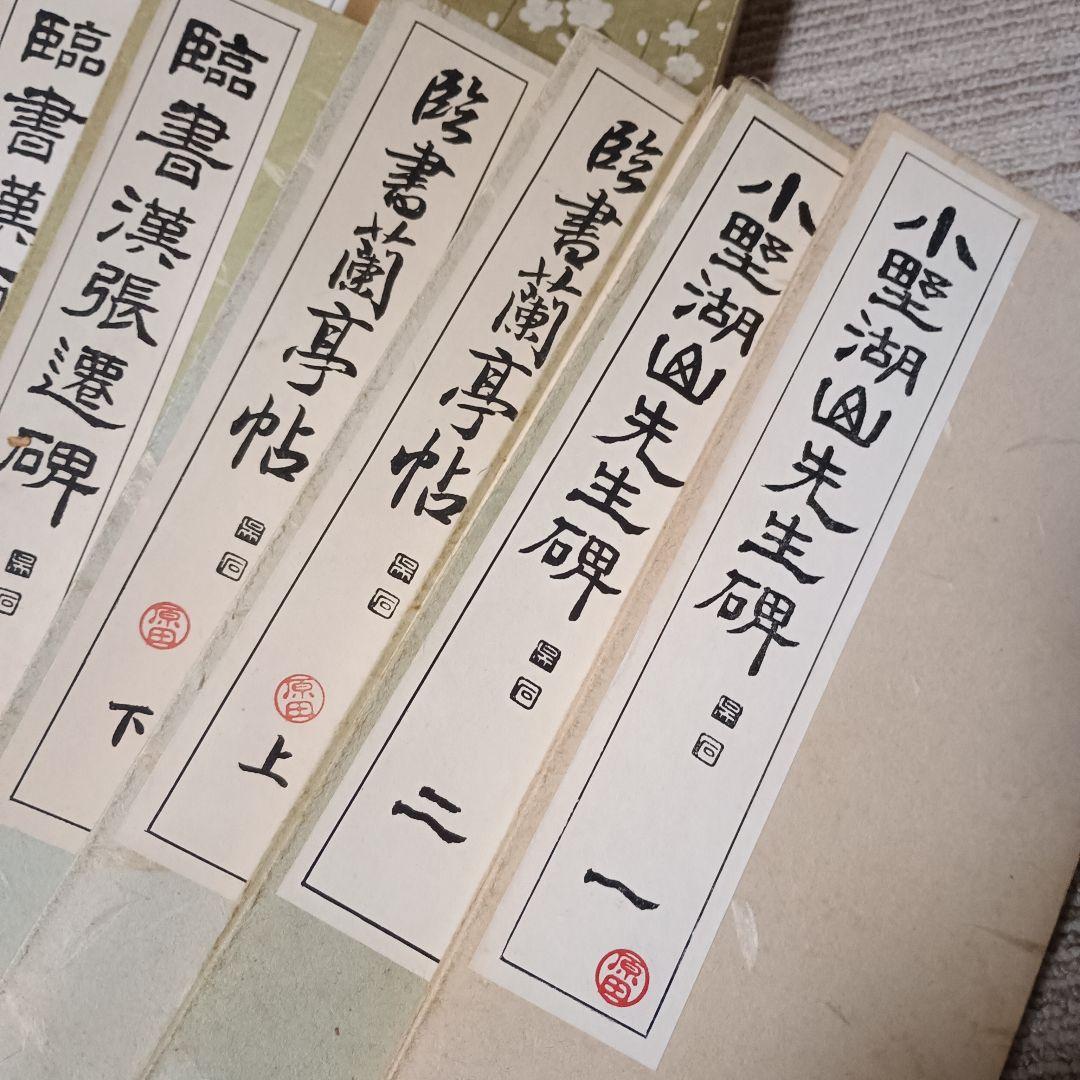 小野湖山先生碑
一
原田
小野湖山先生碑
二
臨書蘭亭帖
原田
上
臨書蘭亭帖
原田
下
臨書漢張遷碑
臨書漢